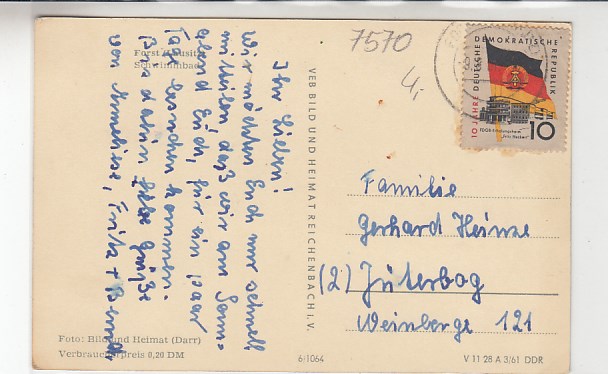 Forst (Lausitz)
Schwimmbad
7570
4,-
Ihr Lieben!
Wir möchten Euch nur schnell
mitteilen, daß wir am Sonn-
abend Euch, für ein paar
Tage besuchen kommen.
Bis dahin liebe Grüße
von Anneliese, Fritz + Bernd.
Foto: Bild und Heimat (Darr)
Verbraucherpreis 0,20 DM
VEB BILD UND HEIMAT REICHENBACH I. V.
6/1064
10 JAHRE DEUTSCHE DEMOKRATISCHE REPUBLIK
FDGB-Erholungsheim
"Fritz Heckert"
10
Familie
Gerhard Heinze
(2) Jüterbog
Weinberge 121
V 11 28 A 3/61 DDR